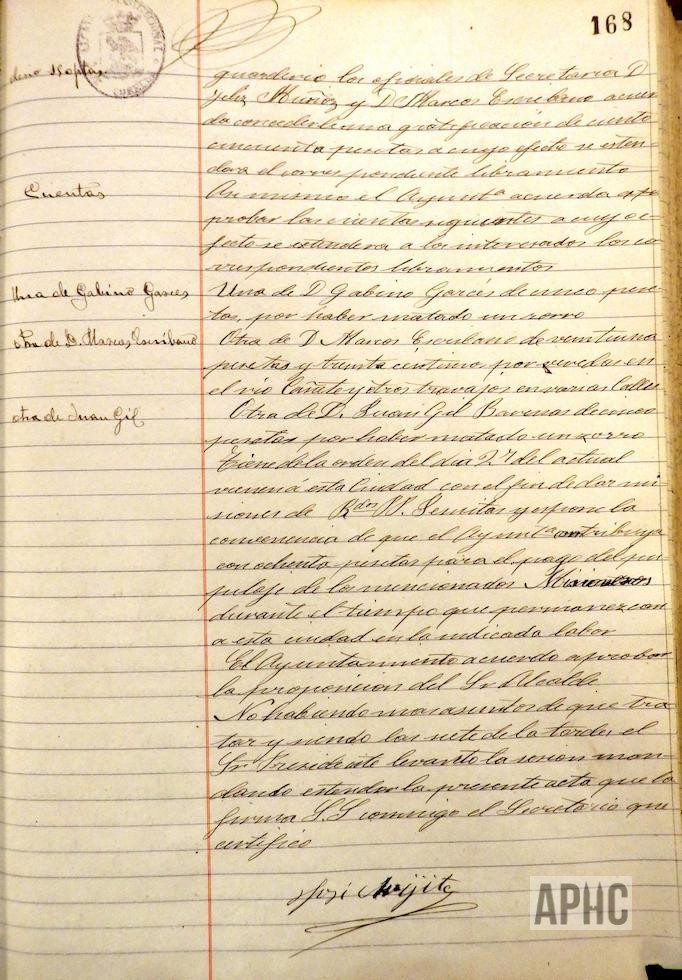 168
guardirio los oficiales de Secretaria D
Feliz Muñoz y D Marcos Escribano acuer
da concederle una gratificación de ciento
cincuenta pesetas a cuyo efecto se esten
dera el correspondiente libramiento
Cuentas
Asi mismo el Ayuntº acuerda a
probar las cuentas siguientes a cuyo e
fecto se estendera a los interesados los co
rrespondientes libramientos
Una de Gabino Garces
Una de D Gabino Garcés de cinco pese
tas, por haber matado un zorro
otra de D. Marcos Escribano
Otra de D. Marcos Escribano de veintiuna
pesetas y treinta centimos por veredas en
el rio Cañate y otros travajos en varias Calles
otra de Juan Gil
Otra de D. Juan Gil de cinco
pesetas por haber matado un zorro
tiene de la orden del dia 27 del actual
vienen á esta Ciudad con el fin de dar mi
siones de Rdos PP. Jesuitas y espone la
conveniencia de que el Ayuntº contribuya
con ochenta pesetas para el pago del pu
pilaje de los mencionados Misioneros
durante el tiempo que permanezcan
a esta ciudad en la indicada labor
El Ayuntamiento acuerda aprobar
la proposicion del Sr Alcalde
No habiendo mas asuntos de que tra
tar y siendo las siete de la tarde, el
Sr Presidente levantó la sesion man
dando estender la presente acta que la
firma S.S conmigo el Secretario que
certifico
APHC